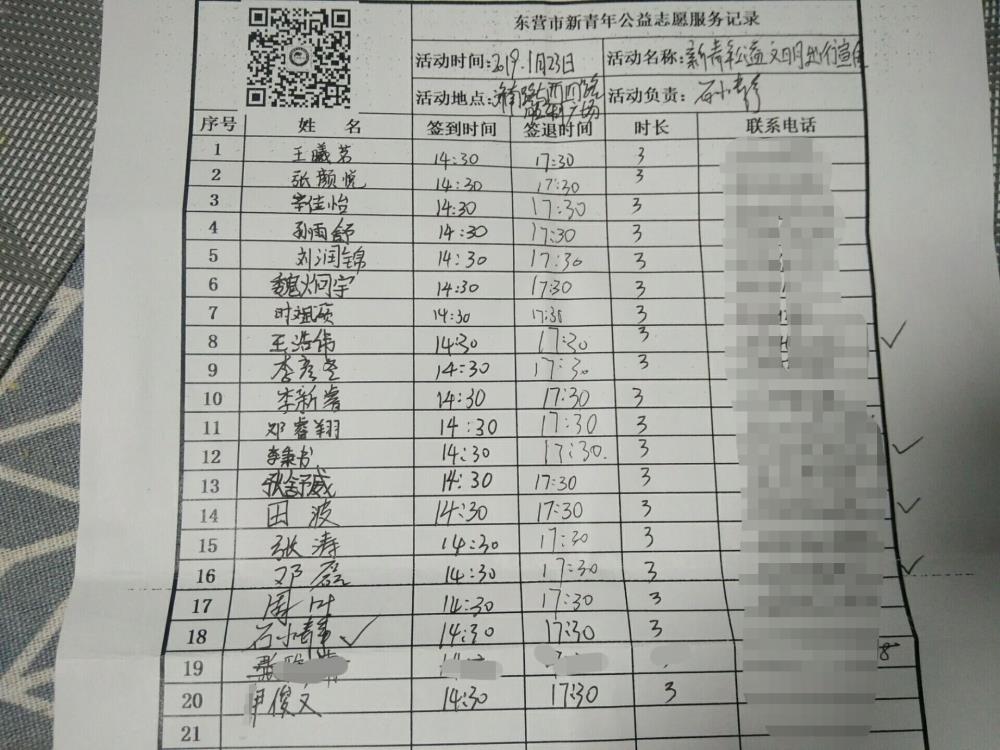 东营市新青年公益志愿服务记录
活动时间:2019.1月23日 活动名称:新青年公益文明出行宣传
活动地点: 西四路 广场 活动负责:石小静
序号 姓 名 签到时间 签退时间 时长 联系电话
1 王曦茗 14:30 17:30 3
2 张颜悦 14:30 17:30 3
3 李佳怡 14:30 17:30 3
4 孙雨舒 14:30 17:30 3
5 刘润锦 14:30 17:30 3
6 魏炯宇 14:30 17:30 3
7 时 硕 14:30 17:30 3
8 王浩伟 14:30 17:30 3
9 李彦 14:30 17:30 3
10 李新睿 14:30 17:30 3
11 邓睿翔 14:30 17:30 3
12 李秉书 14:30 17:30. 3
13 张舒威 14:30 17:30 3
14 田波 14:30 17:30 3
15 张涛 14:30 17:30 3
16 邓磊 14:30 17:30 3
17 周叶 14:30 17:30 3
18 石小静 14:30 17:30 3
19 8
20 尹俊文 14:30 17:30 3
21